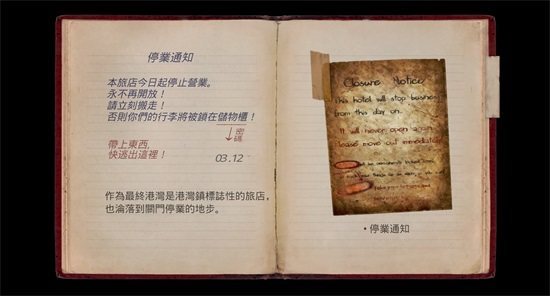 停業通知
本旅店今日起停止營業。
永不再開放！
請立刻搬走！
否則你們的行李將被鎖在儲物櫃！
↓密碼
帶上東西,
快逃出這裡！
03.12
作為最終港灣是港灣鎮標誌性的旅店,
也淪落到關門停業的地步。
Closure Notice
This hotel will stop business
from this day on.
It will never open again.
Please move out immediately
• 停業通知